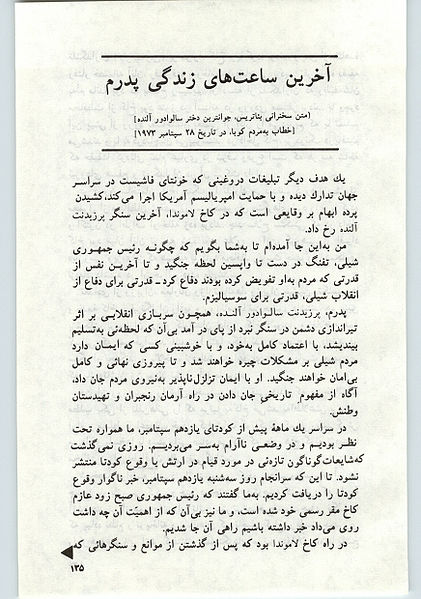 آخرین ساعت‌های زندگی پدرم
[متن سخنرانی بئاتریس، جوانترین دختر سالوادور آلنده]
[خطاب به‌مردم کوبا، در تاریخ ۲۸ سپتامبر ۱۹۷۳]
یك هدف دیگر تبلیغات دروغینی که خونتای فاشیست در سراسر
جهان تدارك دیده و با حمایت امپریالیسم آمریکا اجرا می‌کند، کشیدن
پرده ابهام بر وقایعی است که در کاخ لاموندا، آخرین سنگر پرزیدنت
آلنده رخ داد.
من به‌این جا آمده‌ام تا به‌شما بگویم که چگونه رئیس جمهوری
شیلی، تفنگ در دست تا واپسین لحظه جنگید و تا آخرین نفس از
قدرتی که مردم به‌او تفویض کرده بودند دفاع کرد ـ قدرتی برای دفاع از
انقلاب شیلی، قدرتی برای سوسیالیزم.
پدر‌م، پرزیدنت سالوادور آلنده، همچون سربازی انقلابی بر اثر
تیراندازی دشمن در سنگر نبرد از پای در آمد بی‌آن که لحظه‌ئی به‌تسلیم
بیندیشد، با اعتماد کامل به‌خود، و با خوشبینی کسی که ایمان دارد
مردم شیلی بر مشکلات چیره خواهند شد و تا پیروزی نهائی و کامل
بی‌امان خواهند جنگید. او با ایمان تزلزل‌ناپذیر به‌نیروی مردم جان داد،
آگاه از مفهوم تاریخیِ جان دادن در راه آرمان رنجبران و تهیدستان
وطنش.
در سراسر یك ماههٔ پیش از کودتای یازدهم سپتامبر، ما همواره تحت
نظر بودیم و در وضعی ناآرام به‌سر می‌بردیم. روزی نمی‌گذشت
که‌شایعات‌گوناگون تازه‌ئی در مورد قیام در ارتش یا وقوع کودتا منتشر
نشود. تا این که سرانجام روز سه‌شنبه یازدهم سپتامبر، خبر ناگوار وقوع
کودتا را دریافت کردیم. به‌ما گفتند که رئیس جمهوری صبح زود عازم
کاخ مقر رسمی خود شده است، و ما نیز بی‌آن که از اهمیّت آن چه داشت
روی می‌داد خبر داشته باشیم راهی آن جا شدیم.
در راه کاخ لاموندا بود که پس از گذشتن از موانع و سنگرهائی که
۱۳۵